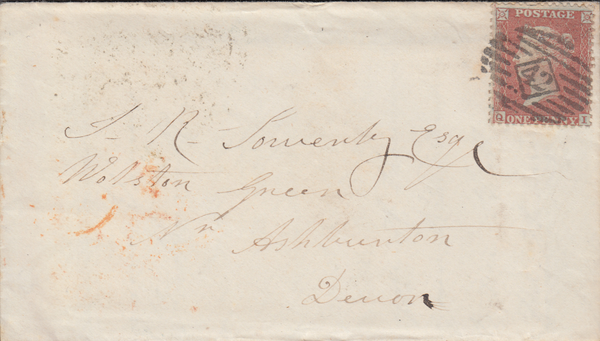 POSTAGE
42
Q ONE PENNY I
J. R. Sowerby Esq
Wolston Green
Nr Ashburton
Devon